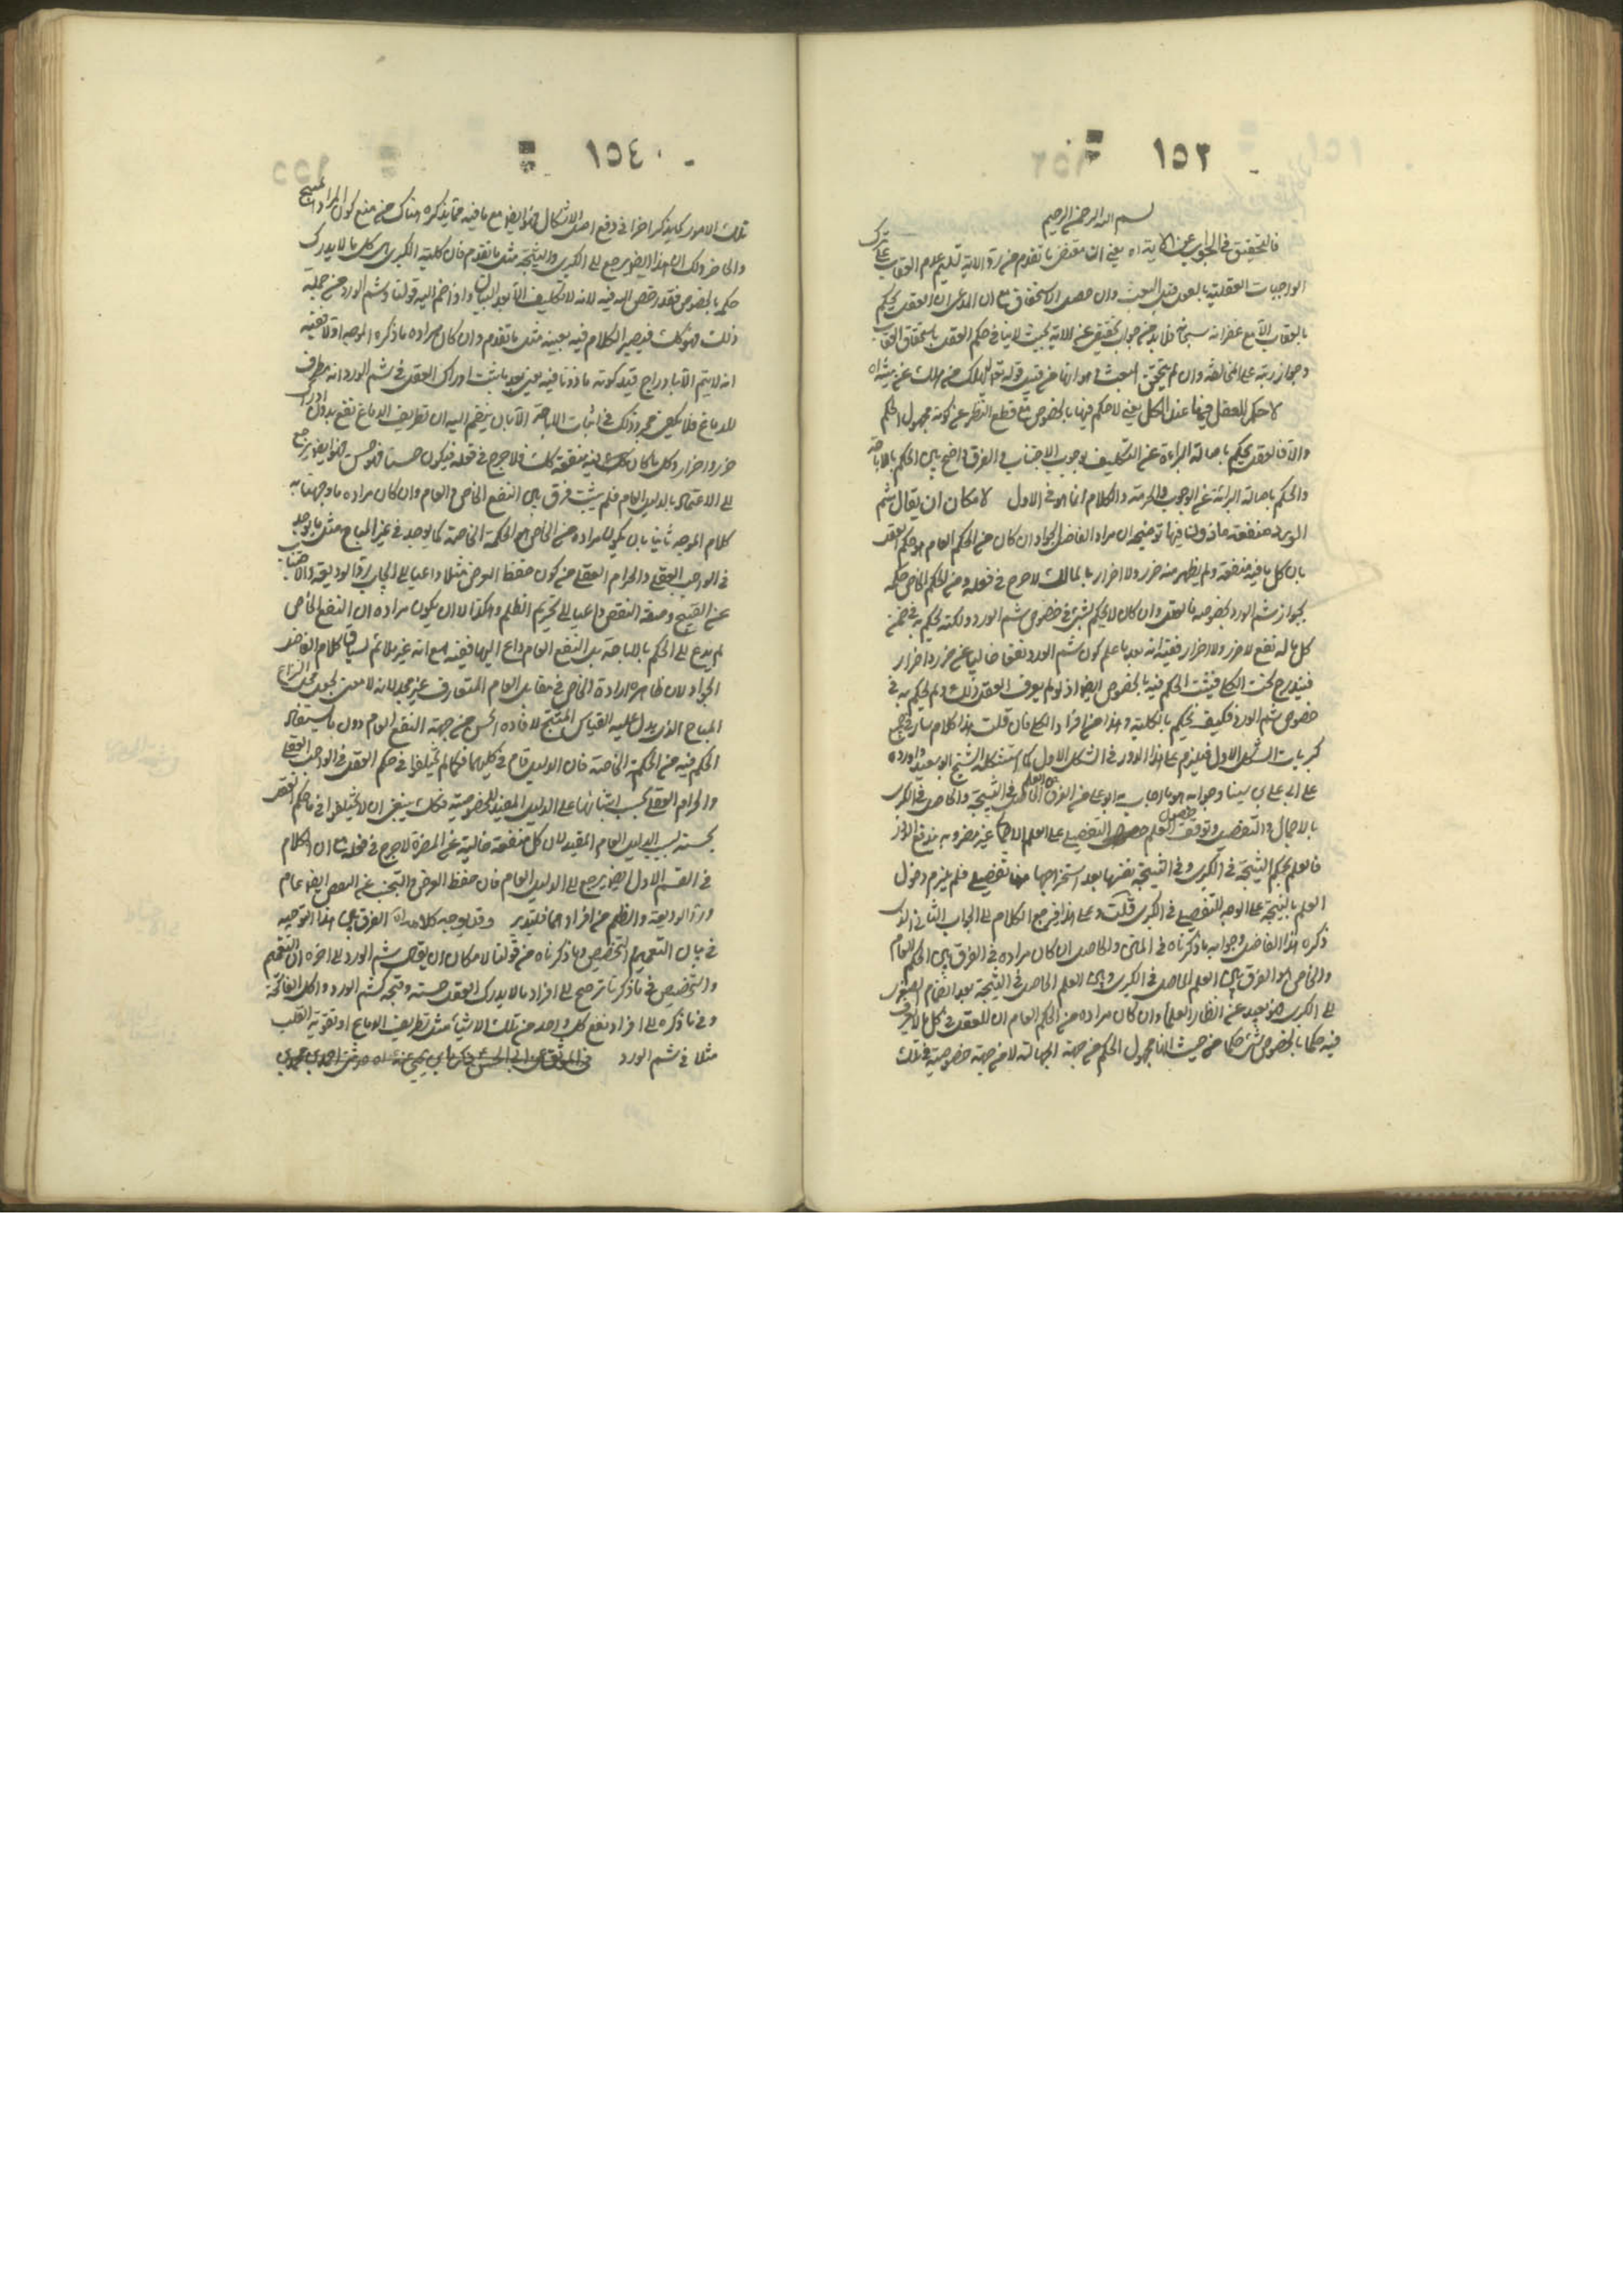 ١٥٣
بسم الله الرحمن الرحيم
فالتحقيق في الجواب عن الآية اه يعني ان مقتضى ما تقدم من رد الآية تسليم عدم العقاب على ترك
الواجبات العقلية بالعقل قبل البعث وان حصل الاستحقاق مع ان المدعى ان العقل يحكم
بالعقاب الا مع غفرانه سبحانه فلا بد من جواب تحقيقي عن الآية بحيث لا ينافي حكم العقل باستحقاق العقاب
وجواز ترتبه على المخالفة وان لم يتحقق البعث من قبيل قوله تعالى ليهلك من هلك عن بينة اه
لا حكم للعقل فيها عند الكل يعني لا حكم فيها بالخصوص مع قطع النظر عن كونه مجهول الحكم
والا فالعقل يحكم باصالة البراءة عن التكليف بوجوب الاجتناب والفرق واضح بين الحكم بالاباحة
والحكم باصالة البرائة عن الوجوب والحرمة والكلام انما هو في الاول لامكان ان يقال شم
الورد منفعة ماذون فيها توضيحه ان مراد الفاضل الجواد ان كان من الحكم العام هو حكم العقل
بان كل ما فيه منفعة ولم يظهر منه ضرر ولا اضرار بالمالك لا حرج في فعله ومن الحكم الخاص حكمه
بجواز شم الورد بخصوصه فالعقل وان كان لا يحكم بشئ في خصوص شم الورد ولكنه يحكم به في ضمن
كل ما له نفع لا ضرر ولا اضرار ففيه انه بعد ما علم كون شم الورد نفعا خاليا عن ضرر واضرار
فيندرج تحت الكل فيثبت الحكم فيه بالخصوص ايضا اذ لو لم يعرف العقل ذلك ولم يحكم به في
خصوص شم الورد فكيف يحكم بالكلية وهذا من افراد الكلي فان قلت هذا كلام سار في جميع
كبريات الشكل الاول فيلزم على هذا الدور في الشكل الاول كما استشكله الشيخ ابو سعيد واورده
على ابي علي بن سينا وجوابه هو ما اجاب به ابو علي من الفرق بين العلم الحاصل في النتيجة والحاصل في الكبرى
بالاجمال والتفصيل وتوقف حصول العلم التفصيلي على العلم الاجمالي غير مضر وبه يندفع الدور
فالعلم بحكم النتيجة في الكبرى وفي النتيجة نفسها بعد استخراجها تفصيلي فلم يلزم دخول
العلم بالنتيجة على الوجه التفصيلي في الكبرى قلت وعلى هذا فيرجع الكلام الى الجواب الثاني الذي
ذكره هذا الفاضل وجوابه ما ذكرناه في المتن والحاصل ان كان مراده في الفرق بين الحكم العام
والخاص هو الفرق بين العلم الحاصل في الكبرى وبين العلم الحاصل في النتيجة بعد انضمام الصغرى
الى الكبرى فهو بعيد عن انظار العلماء وان كان مراده من الحكم العام ان للعقل في كل ما لا يعرف
فيه حكما بالخصوص شئ حكما من حيث انها مجهول الحكم من جهة الجهالة لا من جهة خصوصية في تلك
١٥٤
تلك الامور كما يذكر اخرا في دفع اصل الاشكال فهو ايضا مع ما فيه مما يذكره هناك من منع كون المراد اعم
والحاضر ذلك ان هذا ايضا يرجع الى الكبرى والنتيجة مثل ما تقدم فان كلية الكبرى هي كل ما لا يدرك
حكمه بالخصوص فقد رخص الله فيه لانه لا تكليف الا بعد البيان واذا ضم اليه قولنا وشم الورد من جملة
ذلك فهو كك فيصير الكلام فيه بعينه مثل ما تقدم وان كان مراده ما ذكره الموجه اولا ففيه
انه لا يتم الا بادراج قيد كونه ماذونا فيه يعني بعد ما يثبت ادراك العقل في شم الورد انه مطرف
للدماغ فلا يكفي مجرد ذلك في اثبات الاباحة الا بان ينضم اليه ان تطريف الدماغ نفع بدون ادراك
ضرر واضرار وكل ما كان كك فيه منفعة كك فلا حرج في فعله فيكون حسنا فهو حسن فهو ايضا يرجع
الى الاعتماد بالدليل العام فلم يثبت فرق بين النفع الخاص والعام وان كان مراده ما وجهنا به
كلام الموجه ثانيا بان يكون مراده من الخاص هو الحكمة الخاصة كما يوجد في غير المباح مثل ما يوجد
في الواجب العقلي والحرام العقلي من كون حفظ العرض مثلا داعيا الى ايجاب رد الوديعة والاجتناب
عن القبيح وصفة النقص داعيا الى تحريم الظلم وهكذا لا ان يكون مراده ان النفع الخاص
لم يدع الى الحكم بالاباحة بل النفع العام داع اليها ففيه مع انه غير ملائم لسياق كلام الفاضل
الجواد لان ظاهره ارادة الخاص في مقابل العام المتعارف غير مجد لانه لا معنى لجعل محل النزاع
المباح الذي يدل عليه القياس المنتج لافادة الحسن من جهة النفع العام دون ما يستفاد
الحكم فيه من الحكمة الخاصة فان الدليل قام في كليهما فكما لم يختلفوا في حكم العقل في الواجب العقلي
والحرام العقلي بحسب ابتنائهما على الدليل المفيد للخصوصية فكك ينبغي ان لا يختلفوا في ما حكم العقل
بحسنه بسبب الدليل العام المفيد لان كل منفعة خالية عن المضرة لا حرج في فعله مع ان الكلام
في القسم الاول ايضا يرجع الى الدليل العام فان حفظ العرض والتجنب عن النقص ايضا عام
ورد الوديعة والظلم من افرادهما فليتدبر وقد يوجه كلامه اه الفرق بين هذا التوجيه
في بيان التعميم والتخصيص وما ذكرناه من قولنا لامكان ان يقال شم الورد الى اخره ان التعميم
والتخصيص في ما ذكرنا ترجع الى افراد ما لا يدرك العقل حسنه وقبحه كشم الورد واكل الفاكهة
وفي ما ذكره الى افراد نفع كل واحد من تلك الاشياء مثل تطريف الدماغ او تقوية القلب
مثلا في شم الورد